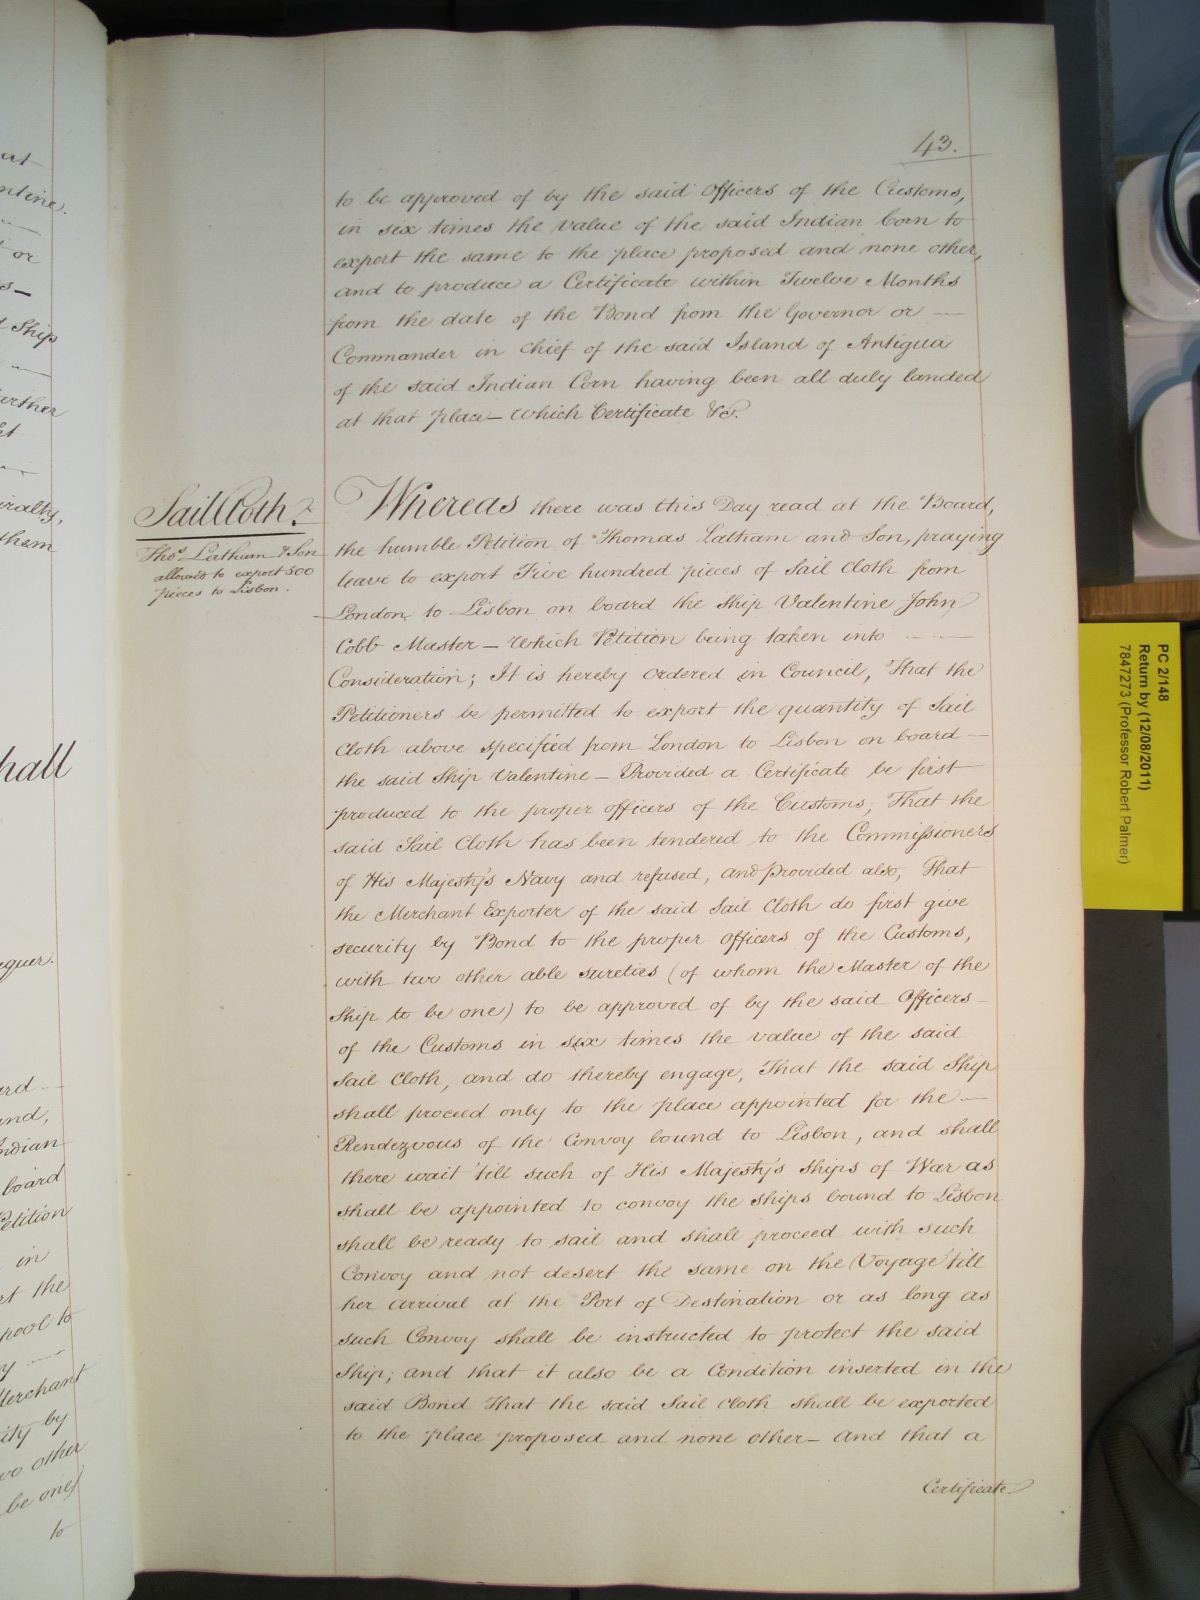 43.
to be approved of by the said Officers of the Customs,
in six times the value of the said Indian Corn to
export the same to the place proposed and none other,
and to produce a Certificate within Twelve Months
from the date of the Bond from the Governor or —
Commander in chief of the said Island of Antigua
of the said Indian Corn having been all duly landed
at that place — Which Certificate &c.
Sail Cloth.
Thos. Latham & Son
allowed to export 500
pieces to Lisbon.
Whereas there was this Day read at the Board,
the humble Petition of Thomas Latham and Son, praying
leave to export Five hundred pieces of Sail Cloth from
London to Lisbon on board the Ship Valentine John
Cobb Master — Which Petition being taken into — —
Consideration; It is hereby ordered in Council, That the
Petitioners be permitted to export the quantity of Sail
Cloth above specified from London to Lisbon on board —
the said Ship Valentine — Provided a Certificate be first
produced to the proper officers of the Customs, That the
said Sail Cloth has been tendered to the Commissioners
of His Majesty's Navy and refused, and provided also, That
the Merchant Exporter of the said Sail Cloth do first give
security by Bond to the proper Officers of the Customs,
with two other able sureties (of whom the Master of the
Ship to be one) to be approved of by the said Officers —
of the Customs in six times the value of the said
Sail Cloth, and do thereby engage, That the said Ship
shall proceed only to the place appointed for the —
Rendezvous of the Convoy bound to Lisbon, and shall
there wait 'till such of His Majesty's Ships of War as
shall be appointed to convoy the Ships bound to Lisbon
shall be ready to sail and shall proceed with such
Convoy and not desert the same on the Voyage 'till
her arrival at the Port of Destination or as long as
such Convoy shall be instructed to protect the said
Ship; and that it also be a Condition inserted in the
said Bond That the said Sail Cloth shall be exported
to the place proposed and none other — And that a
Certificate
PC 2/148
Return by (12/08/2011)
7847273 (Professor Robert Palmer)
or
Ship
them
hall
Indian
board
Petition
in
the
to
Merchant
by
two other
be one)
to